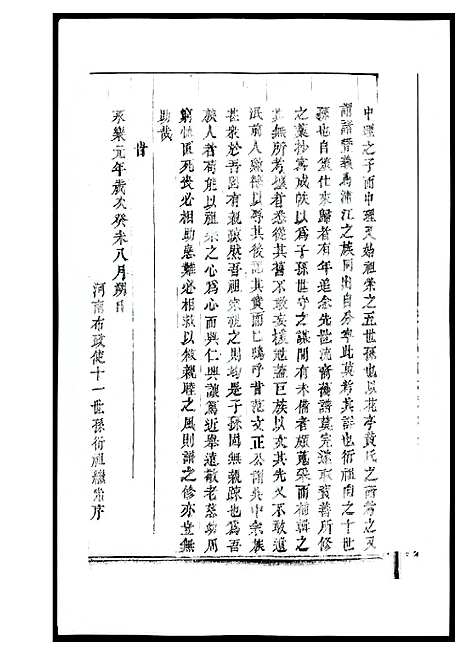 中理之子而中理又始祖榮之五世孫也以花亭黃氏之所考之又
謂諸暨義烏浦江之族同出自分寧此莫考其詳也衍祖自之十世
孫也自策仕來歸者有年追余先世流裔舊譜莫完遂取黃普所修
之藁抄寫成帙以為子孫世守之謀間有未備者頗蒐采而補輯之
其無所考據者悉從其舊不敢妄援冠蓋巨族以玄其先又不敢遺
泯前人勳德以辱其後記其實而已嗚呼昔范文正公謂吳中宗族
甚衆於吾固有親疎然吾祖宗視之則均是子孫固無親疎也為吾
族人者苟能以祖宗之心為心而興仁興讓篤近舉遠敬老慈幼周
窮恤匱死喪必相助患難必相救以敦親睦之風則譜之修亦豈無
助哉
旹
永樂元年歲次癸未八月朔日
河南布政使十一世孫衍祖繼常序